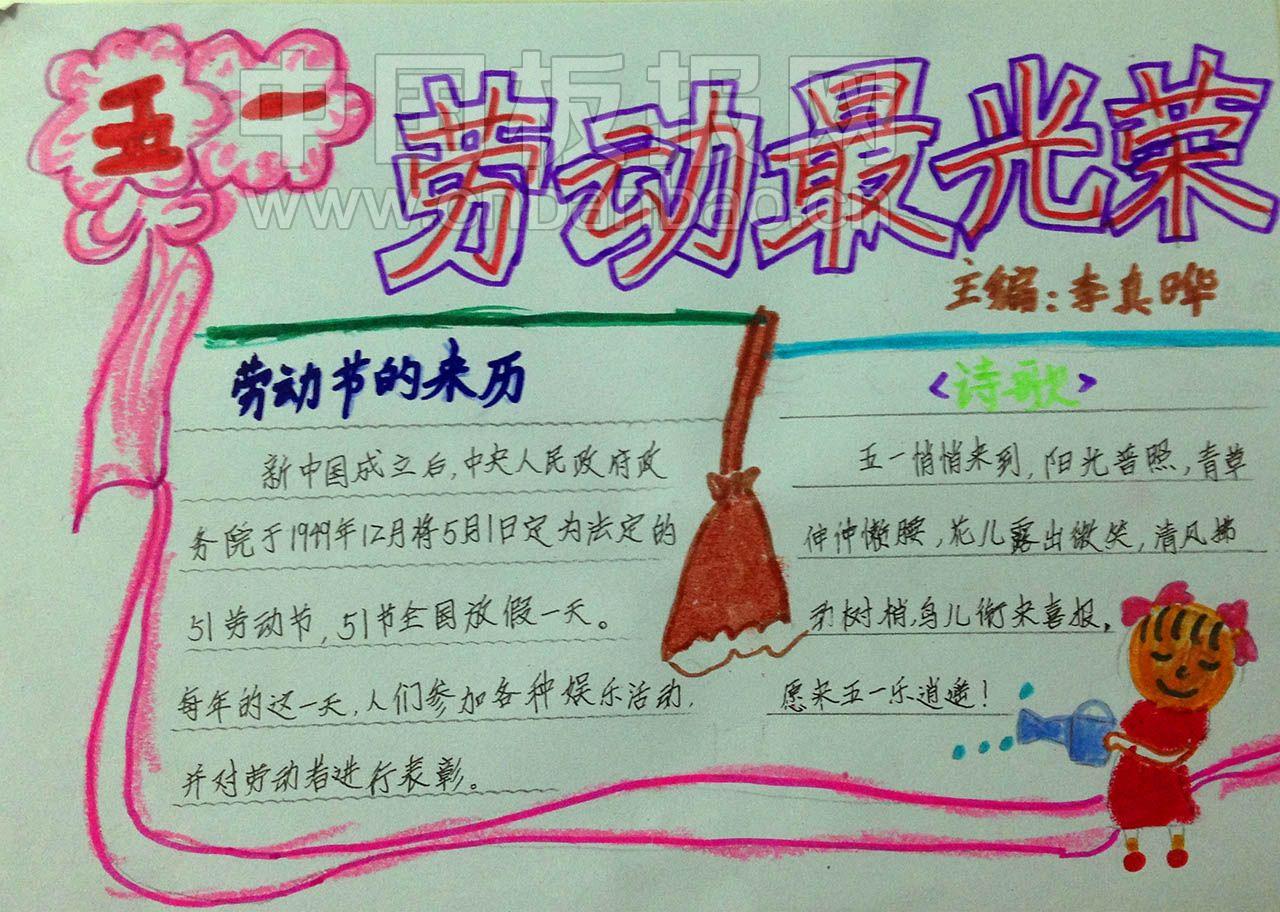 五一
劳动最光荣
中国板报网
www.cnbanbao.cn
主编:李真晔
劳动节的来历
新中国成立后,中央人民政府政
务院于1949年12月将5月1日定为法定的
51劳动节,51节全国放假一天。
每年的这一天,人们参加各种娱乐活动,
并对劳动者进行表彰。
<诗歌>
五一悄悄来到,阳光普照,青草
伸伸懒腰,花儿露出微笑,清风拂
动树梢,鸟儿衔来喜报,
愿来五一乐逍遥!